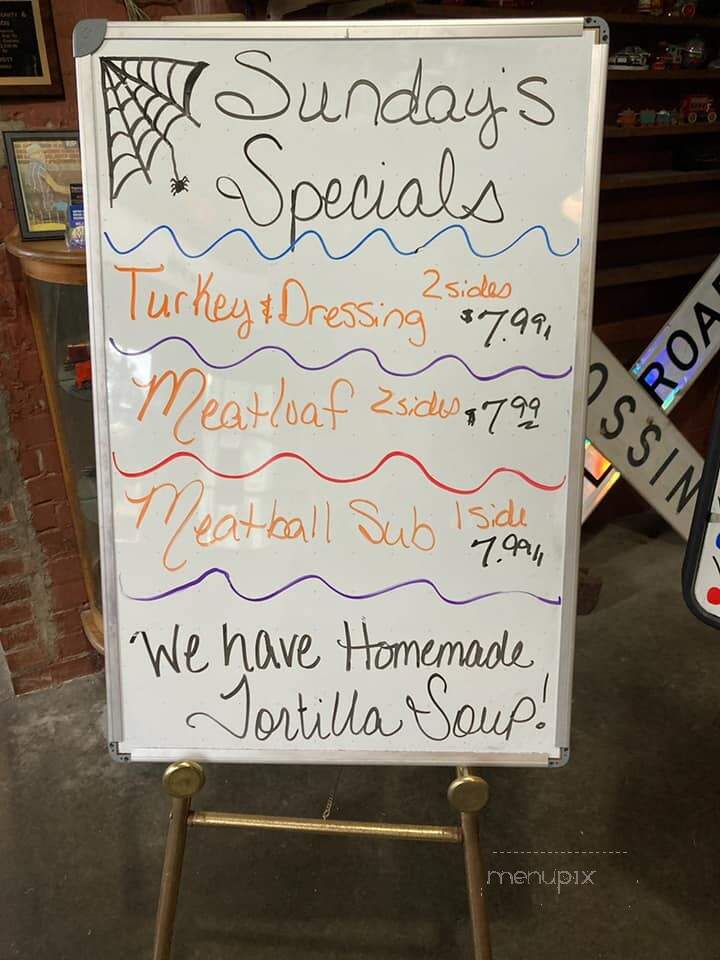 Sunday's
Specials
Turkey & Dressing 2 sides $7.99
Meatloaf 2 sides $7.99
Meatball Sub 1 side 7.99
We have Homemade
Tortilla Soup!
ROA
OSSIN
menupix